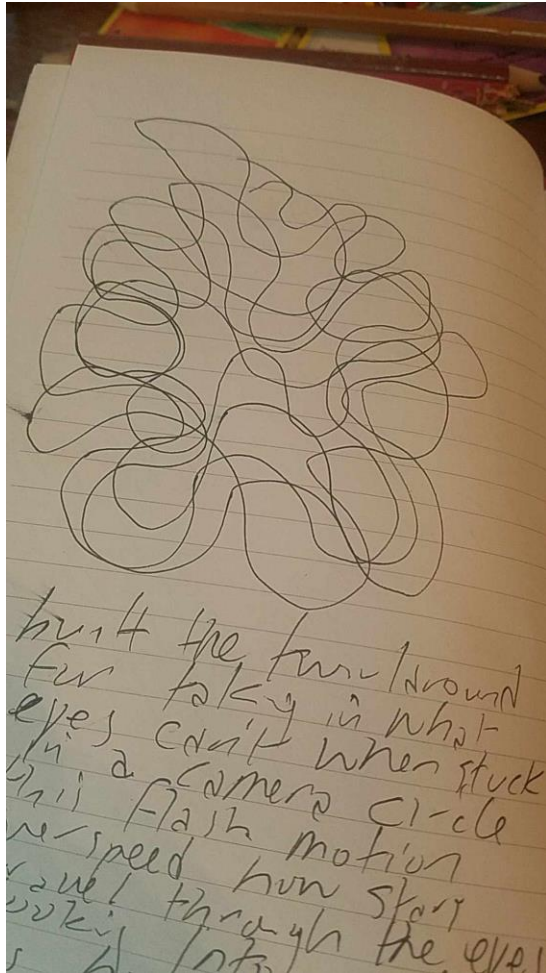 built the turn/around
for taking in what
eyes can't when stuck
in a camera circle
this flash motion
speed how stars
travel through the eyes
looking into